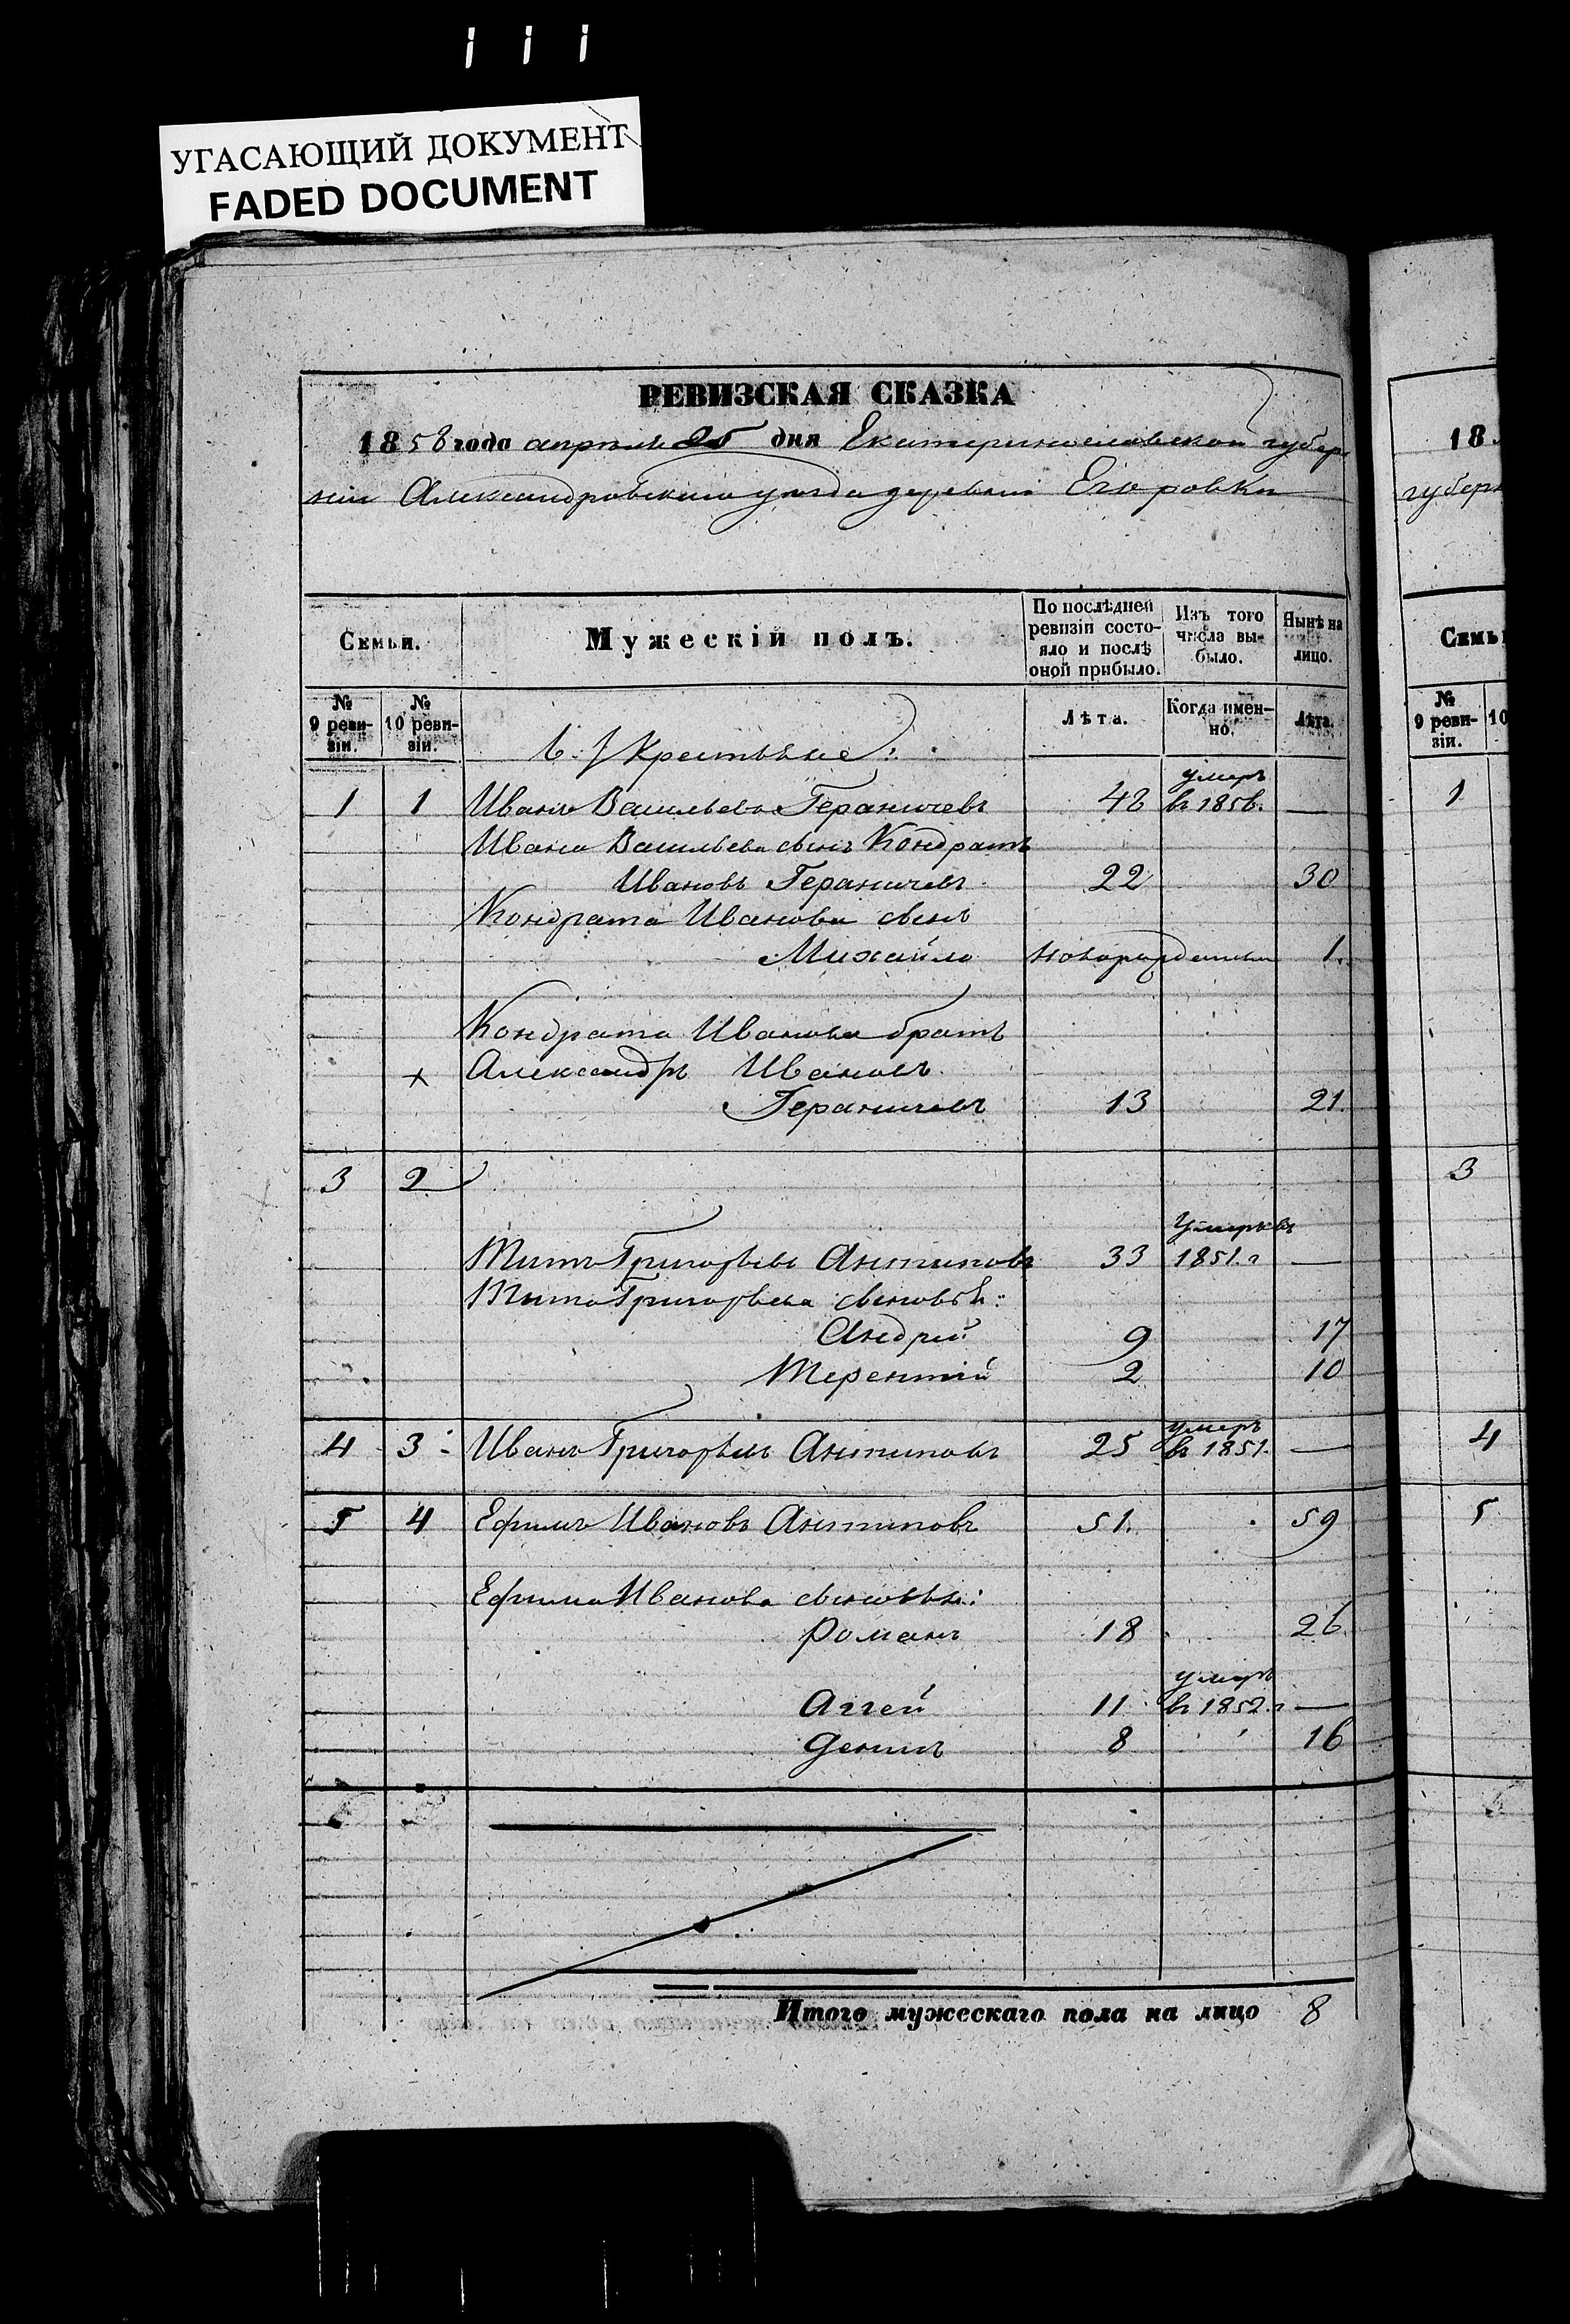 УГАСАЮЩИЙ ДОКУМЕНТ
FADED DOCUMENT
РЕВИЗСКАЯ СКАЗКА
1858 года апреля 25 дня Екатеринославской губер
ніи Александровскаго уезда деревни Егоровки
Семьи.
Мужескій полъ.
По послѣдней ревизіи состо-
яло и послѣ оной прибыло.
Изъ того числа вы-
было.
Нынѣ на лицо.
№ 9 реви-
зіи.
№ 10 реви-
зіи.
Лѣта.
Когда имен-
но.
Лѣта.
Крестьяне:
1 1 Иванъ Васильевъ Гераничевъ 48 умеръ въ 1856. —
Ивана Васильева сынъ Кондратъ
Ивановъ Гераничевъ 22 30
Кондрата Иванова сынъ
Михайло новорожденный 1.
Кондрата Иванова братъ
× Александръ Ивановъ
Гераничевъ 13 21.
3 2
Титъ Григорьевъ Антиповъ 33 Умеръ въ 1851. г —
Тита Григорьева сыновья:
Андрей 9 17
Терентій 2 10
4 3 Иванъ Григорьевъ Антиповъ 25 умеръ въ 1851. —
5 4 Ефимъ Ивановъ Антиповъ 51. 59
Ефима Иванова сыновья:
Романъ 18 26.
Аггей 11 умеръ въ 1852. г —
Денисъ 8 16
Итого мужескаго пола на лицо 8
18
губерн
Семьи
№ 9 реви-
зіи.
10
1
3
4
5